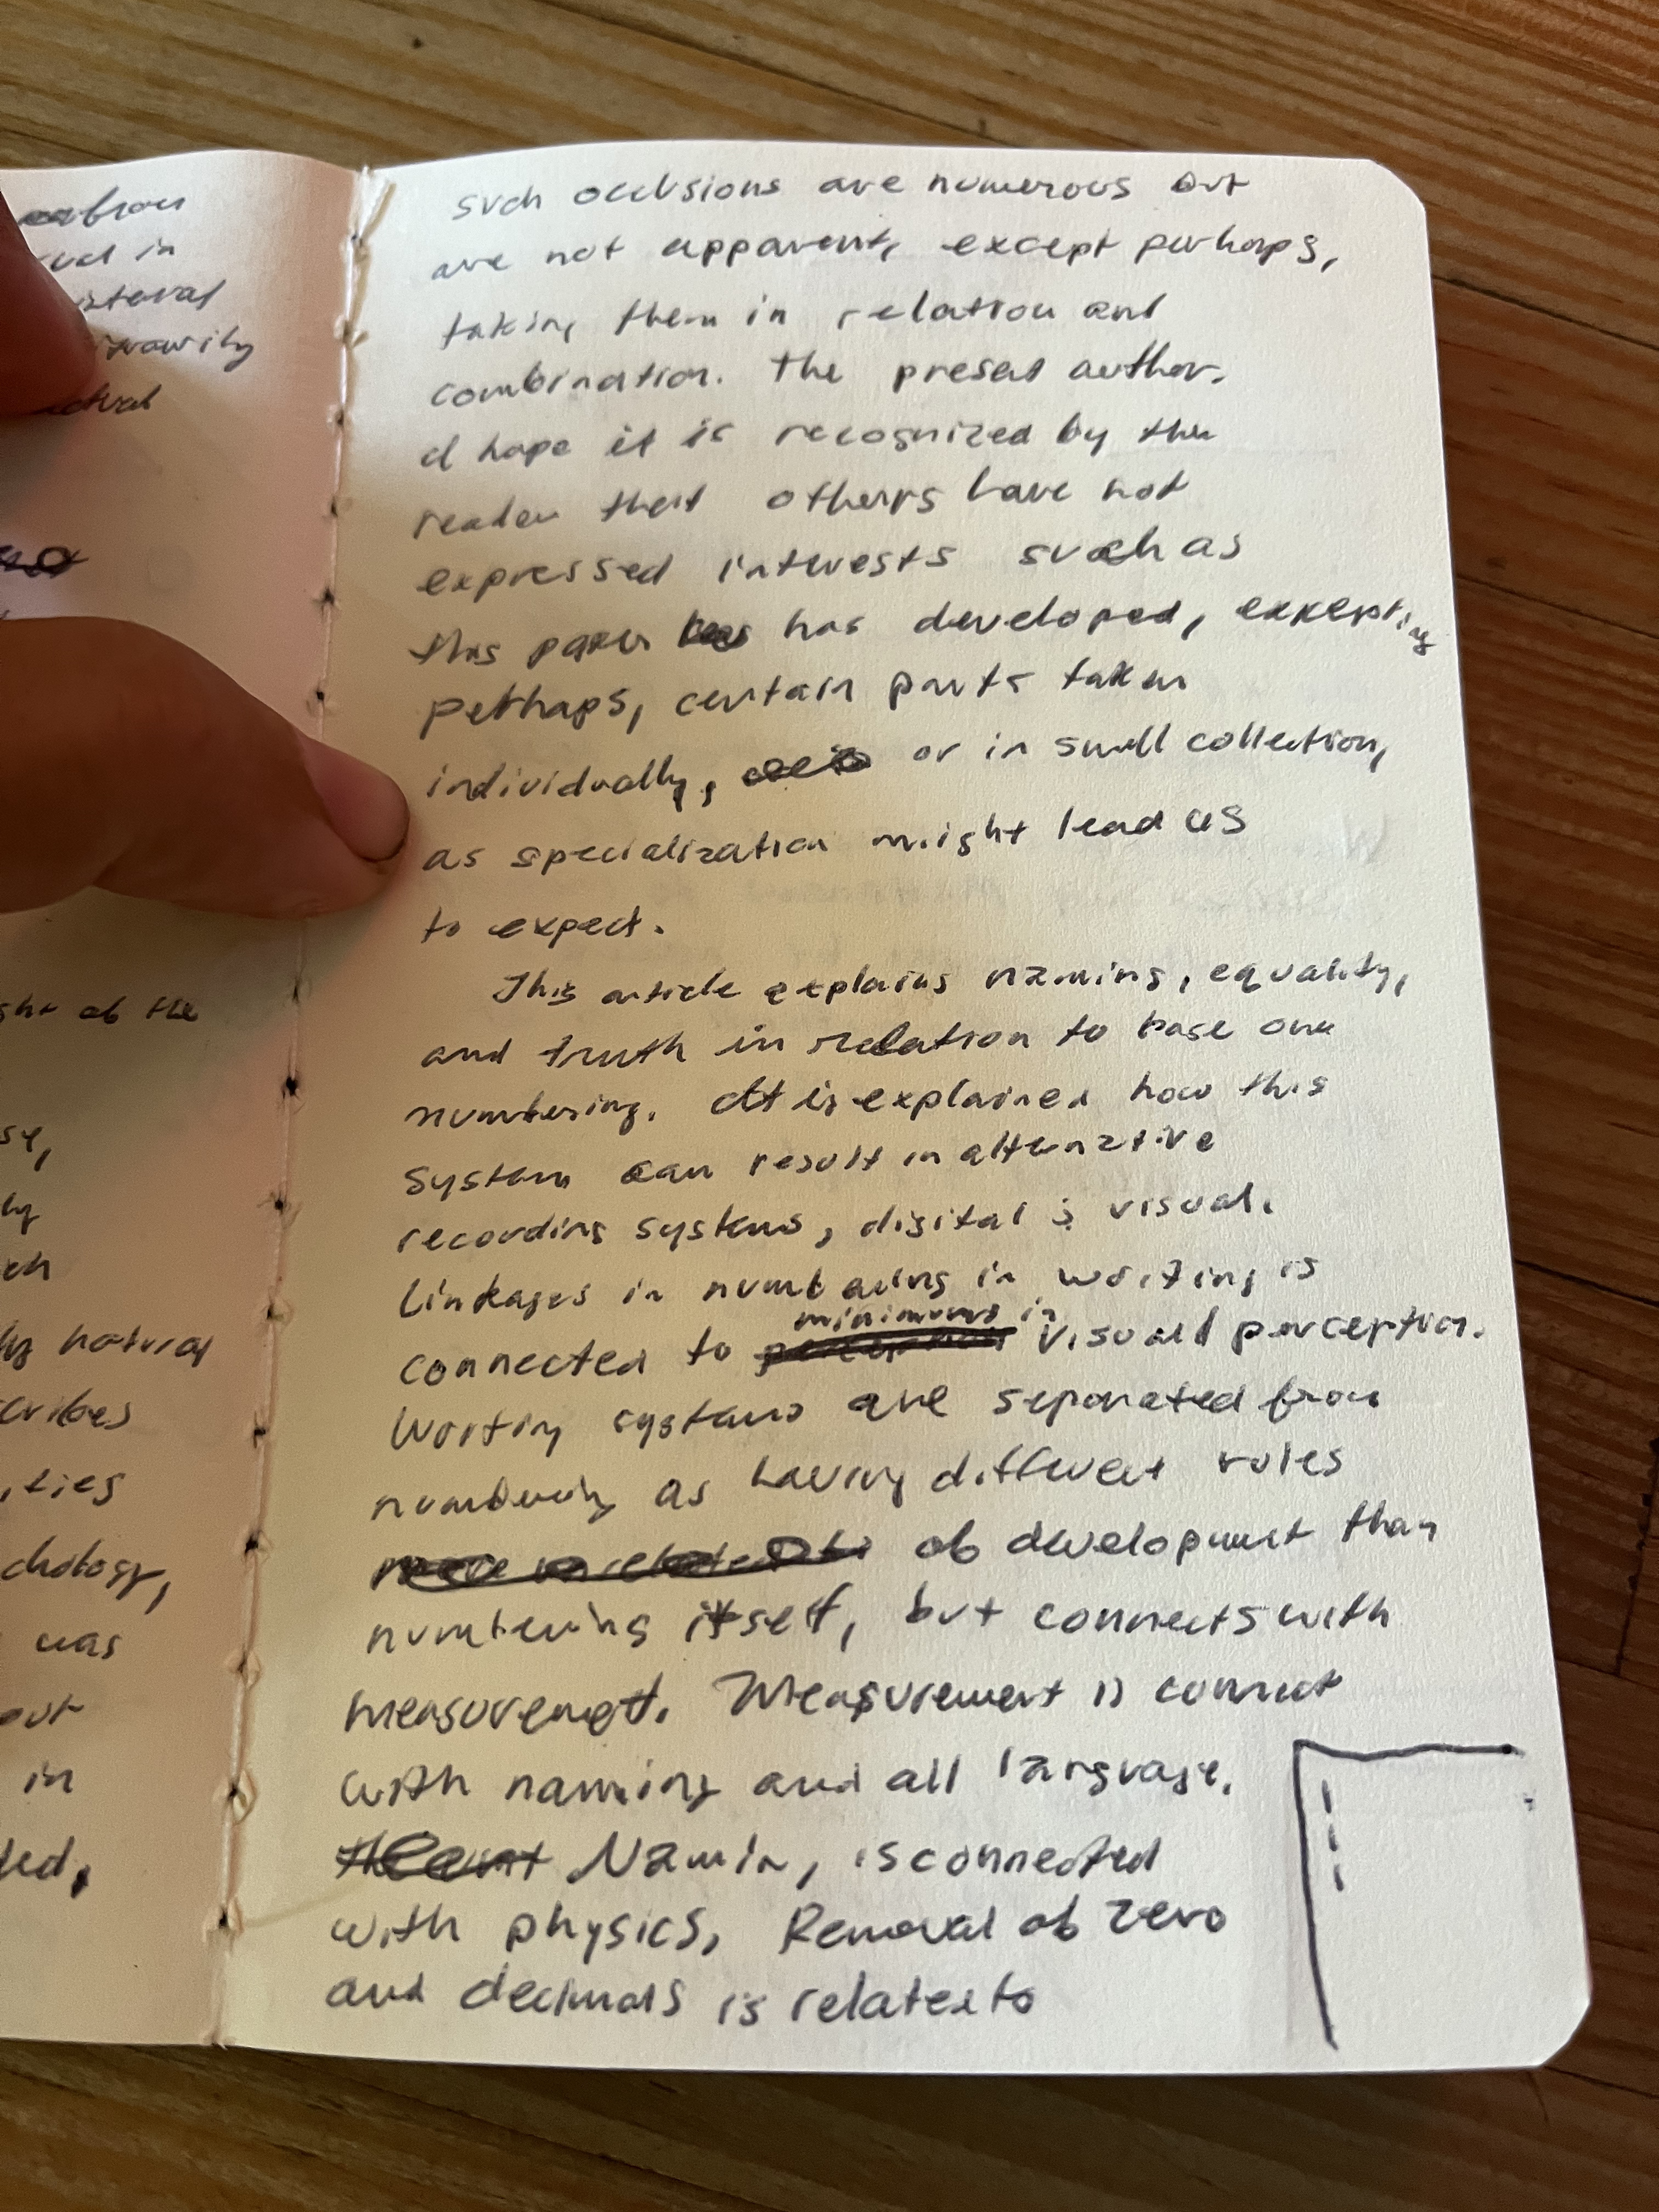 from
in
ght of the
ly natural
cribes
ities
chology,
was
out
in
ded,
such occlusions are numerous but
are not apparent, except perhaps,
taking them in relation and
combination. The present author,
I hope it is recognized by the
reader that others have not
expressed interests such as
this paper has developed, excepting
perhaps, certain parts taken
individually, or in small collection,
as specialization might lead us
to expect.
This article explains naming, equality,
and truth in relation to base one
numbering. It is explained how this
system can result in alternative
recording systems, digital & visual.
Linkages in numbering in writing is
connected to minimums in visual perception.
Writing systems are separated from
numbering as having different rules
of development than
numbering itself, but connects with
measurement. Measurement is connect
with naming and all language.
Naming is connected
with physics, Removal of zero
and decimals is related to